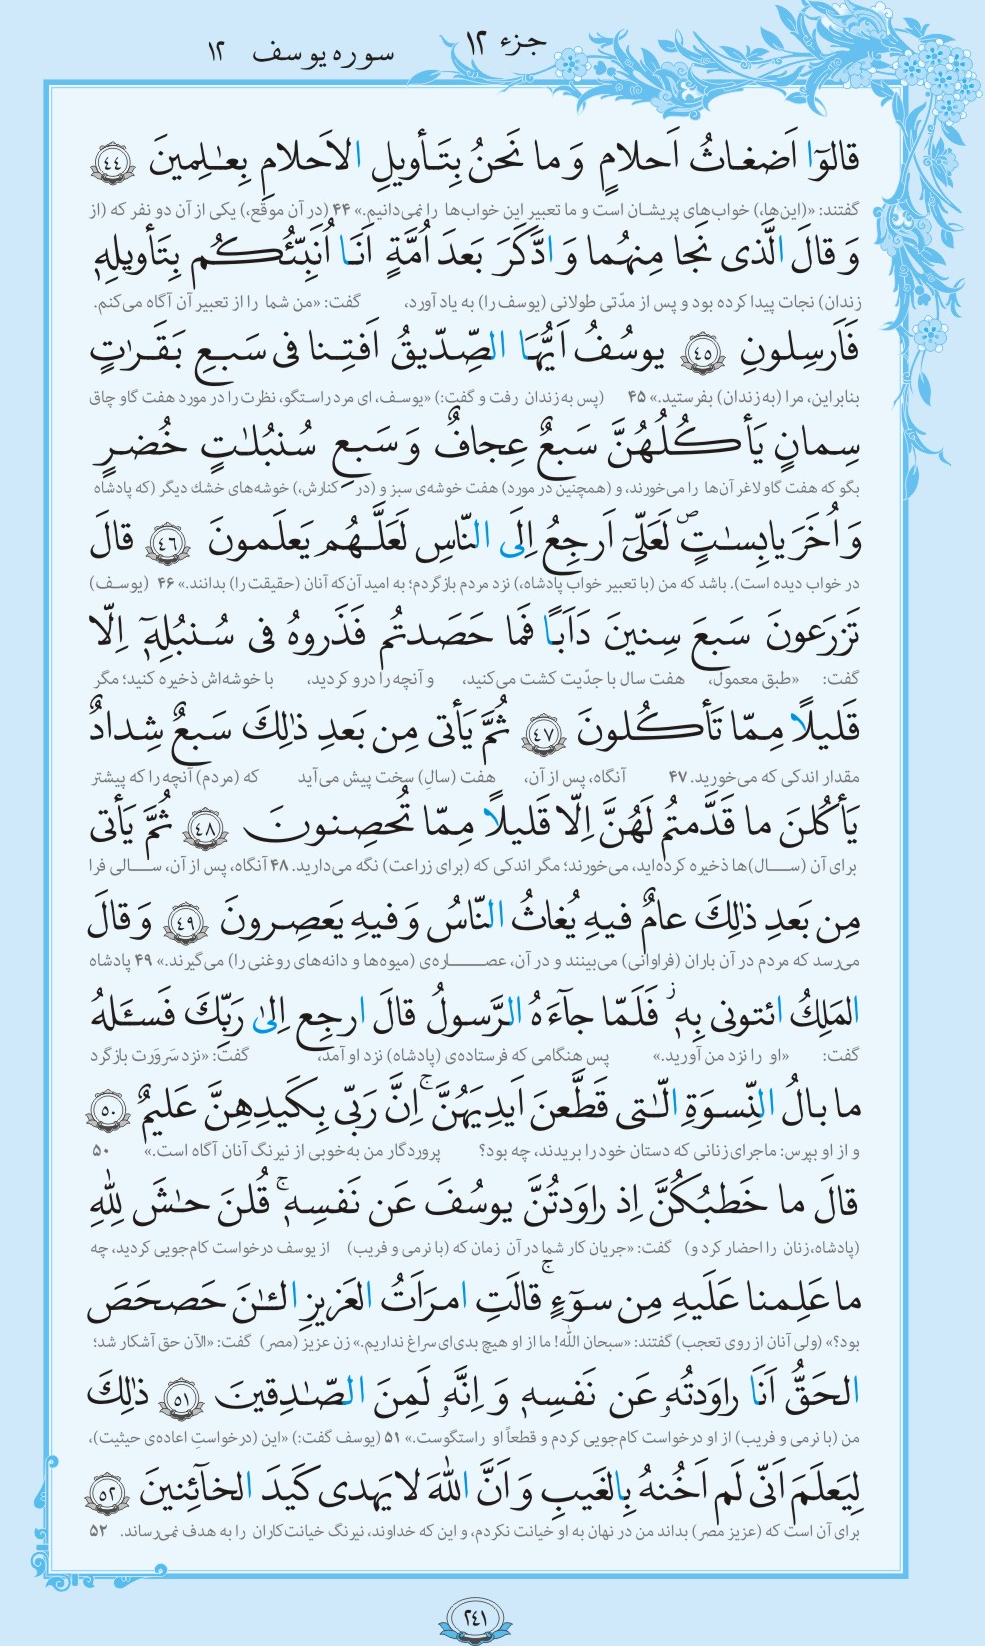 جزء ۱۲
سوره یوسف ۱۲
قالوٓا اَضغاثُ اَحلامٍ وَ ما نَحنُ بِتَأویلِ الاَحلامِ بِعٰلِمینَ ﴿٤٤﴾
گفتند: «(این‌ها،) خواب‌های پریشان است و ما تعبیر این خواب‌ها را نمی‌دانیم.» ۴۴ (در آن موقع،) یکی از آن دو نفر که (از
وَ قالَ الَّذی نَجا مِنهُما وَ ادَّکَرَ بَعدَ اُمَّةٍ اَنَا اُنَبِّئُکُم بِتَأویلِهٖ
زندان) نجات پیدا کرده بود و پس از مدّتی طولانی (یوسف را) به یاد آورد، گفت: «من شما را از تعبیر آن آگاه می‌کنم.
فَاَرسِلونِ ﴿٤٥﴾ یوسُفُ اَیُّهَا الصِّدّیقُ اَفتِنا فی سَبعِ بَقَرٰتٍ
بنابراین، مرا (به زندان) بفرستید.» ۴۵ (پس به زندان رفت و گفت:) «یوسف، ای مرد راستگو، نظرت را در مورد هفت گاو چاق
سِمانٍ یَأکُلُهُنَّ سَبعٌ عِجافٌ وَ سَبعِ سُنبُلٰتٍ خُضرٍ
بگو که هفت گاو لاغر آن‌ها را می‌خورند، و (همچنین در مورد) هفت خوشه‌ی سبز و (در کنارش،) خوشه‌های خشك دیگر (که پادشاه
وَ اُخَرَ یابِسٰتٍ ۖ لَعَلّیٓ اَرجِعُ اِلَی النّاسِ لَعَلَّهُم یَعلَمونَ ﴿٤٦﴾ قالَ
در خواب دیده است). باشد که من (با تعبیر خواب پادشاه،) نزد مردم بازگردم؛ به امید آن‌که آنان (حقیقت را) بدانند.» ۴۶ (یوسف)
تَزرَعونَ سَبعَ سِنینَ دَاَبًا فَما حَصَدتُم فَذَروهُ فی سُنبُلِهٖٓ اِلّا
گفت: «طبق معمول، هفت سال با جدّیت کشت می‌کنید، و آنچه را درو کردید، با خوشه‌اش ذخیره کنید؛ مگر
قَلیلًا مِمّا تَأکُلونَ ﴿٤٧﴾ ثُمَّ یَأتی مِن بَعدِ ذٰلِكَ سَبعٌ شِدادٌ
مقدار اندکی که می‌خورید. ۴۷ آنگاه، پس از آن، هفت (سالِ) سخت پیش می‌آید که (مردم) آنچه را که پیشتر
یَأکُلنَ ما قَدَّمتُم لَهُنَّ اِلّا قَلیلًا مِمّا تُحصِنونَ ﴿٤٨﴾ ثُمَّ یَأتی
برای آن (سال)ها ذخیره کرده‌اید، می‌خورند؛ مگر اندکی که (برای زراعت) نگه می‌دارید. ۴۸ آنگاه، پس از آن، سالی فرا
مِن بَعدِ ذٰلِكَ عامٌ فیهِ یُغاثُ النّاسُ وَ فیهِ یَعصِرونَ ﴿٤٩﴾ وَ قالَ
می‌رسد که مردم در آن باران (فراوانی) می‌بینند و در آن، عصاره‌ی (میوه‌ها و دانه‌های روغنی را) می‌گیرند.» ۴۹ پادشاه
المَلِكُ ائتونی بِهٖ ز فَلَمّا جآءَهُ الرَّسولُ قالَ ارجِع اِلیٰ رَبِّكَ فَسـَٔلهُ
گفت: «او را نزد من آورید.» پس هنگامی که فرستاده‌ی (پادشاه) نزد او آمد، گفت: «نزد سَروَرت بازگرد
ما بالُ النِّسوَةِ الّٰتی قَطَّعنَ اَیدِیَهُنَّ ۚ اِنَّ رَبّی بِکَیدِهِنَّ عَلیمٌ ﴿٥٠﴾
و از او بپرس: ماجرای زنانی که دستان خود را بریدند، چه بود؟ پروردگار من به‌خوبی از نیرنگ آنان آگاه است.» ۵۰
قالَ ما خَطبُکُنَّ اِذ راوَدتُنَّ یوسُفَ عَن نَفسِهٖ ۚ قُلنَ حٰشَ لِلّٰهِ
(پادشاه، زنان را احضار کرد و) گفت: «جریان کار شما در آن زمان که (با نرمی و فریب) از یوسف درخواست کام‌جویی کردید، چه
ما عَلِمنا عَلَیهِ مِن سوٓءٍ ۚ قالَتِ امرَاَتُ العَزیزِ الـٰٔنَ حَصحَصَ
بود؟» (ولی آنان از روی تعجب) گفتند: «سبحان الله! ما از او هیچ بدی‌ای سراغ نداریم.» زن عزیز (مصر) گفت: «الآن حق آشکار شد؛
الحَقُّ اَنَا راوَدتُهٗ عَن نَفسِهٖ وَ اِنَّهٗ لَمِنَ الصّٰدِقینَ ﴿٥١﴾ ذٰلِكَ
من (با نرمی و فریب) از او درخواست کام‌جویی کردم و قطعاً او راستگوست.» ۵۱ (یوسف گفت:) «این (درخواستِ اعاده‌ی حیثیت)،
لِیَعلَمَ اَنّی لَم اَخُنهُ بِالغَیبِ وَ اَنَّ اللّٰهَ لا یَهدی کَیدَ الخآئِنینَ ﴿٥٢﴾
برای آن است که (عزیز مصر) بداند من در نهان به او خیانت نکردم، و این که خداوند، نیرنگ خیانت‌کاران را به هدف نمی‌رساند. ۵۲
۲٤۱